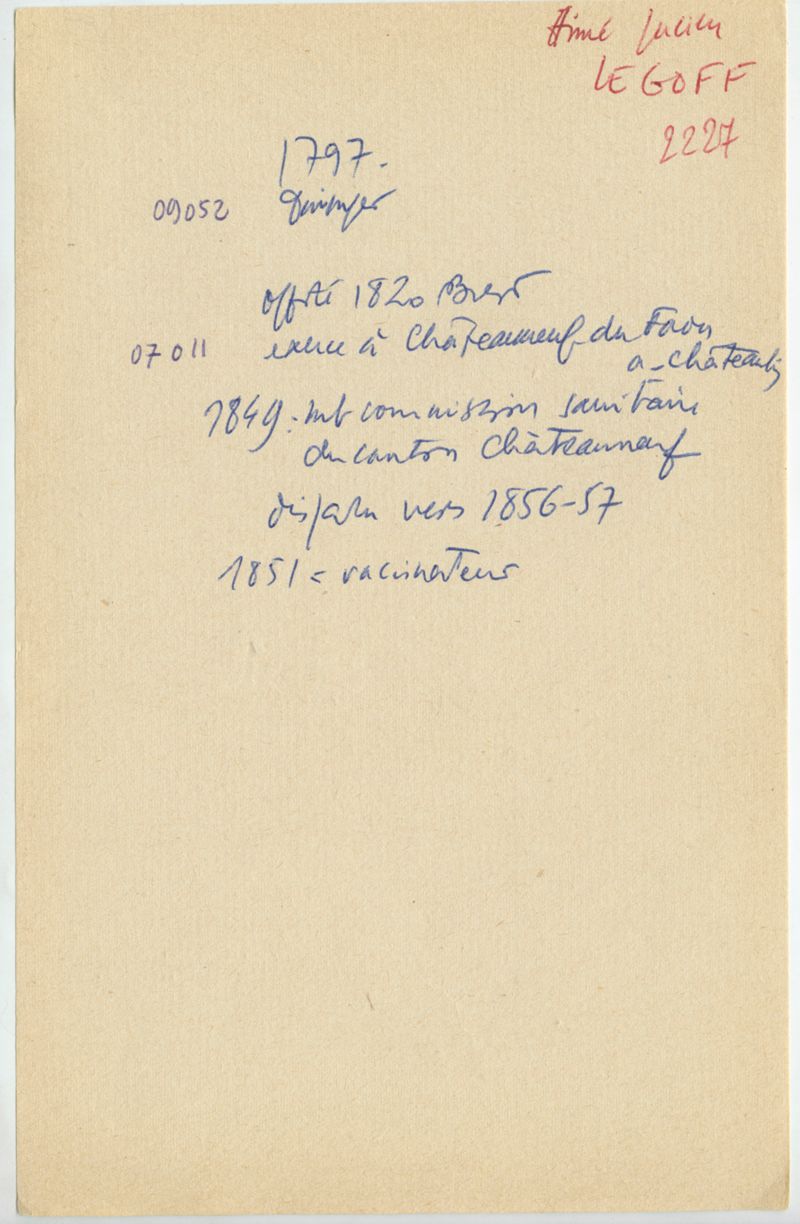 Aimé Julien
LE GOFF
2227
1797.
09052 Quimper
offité 1820 Brest
07011 exerce à Châteauneuf du Faou
a - châteaulin
1849. mb commission sanitaire
du canton Châteauneuf
disparu vers 1856-57
1851 = vaccinateur